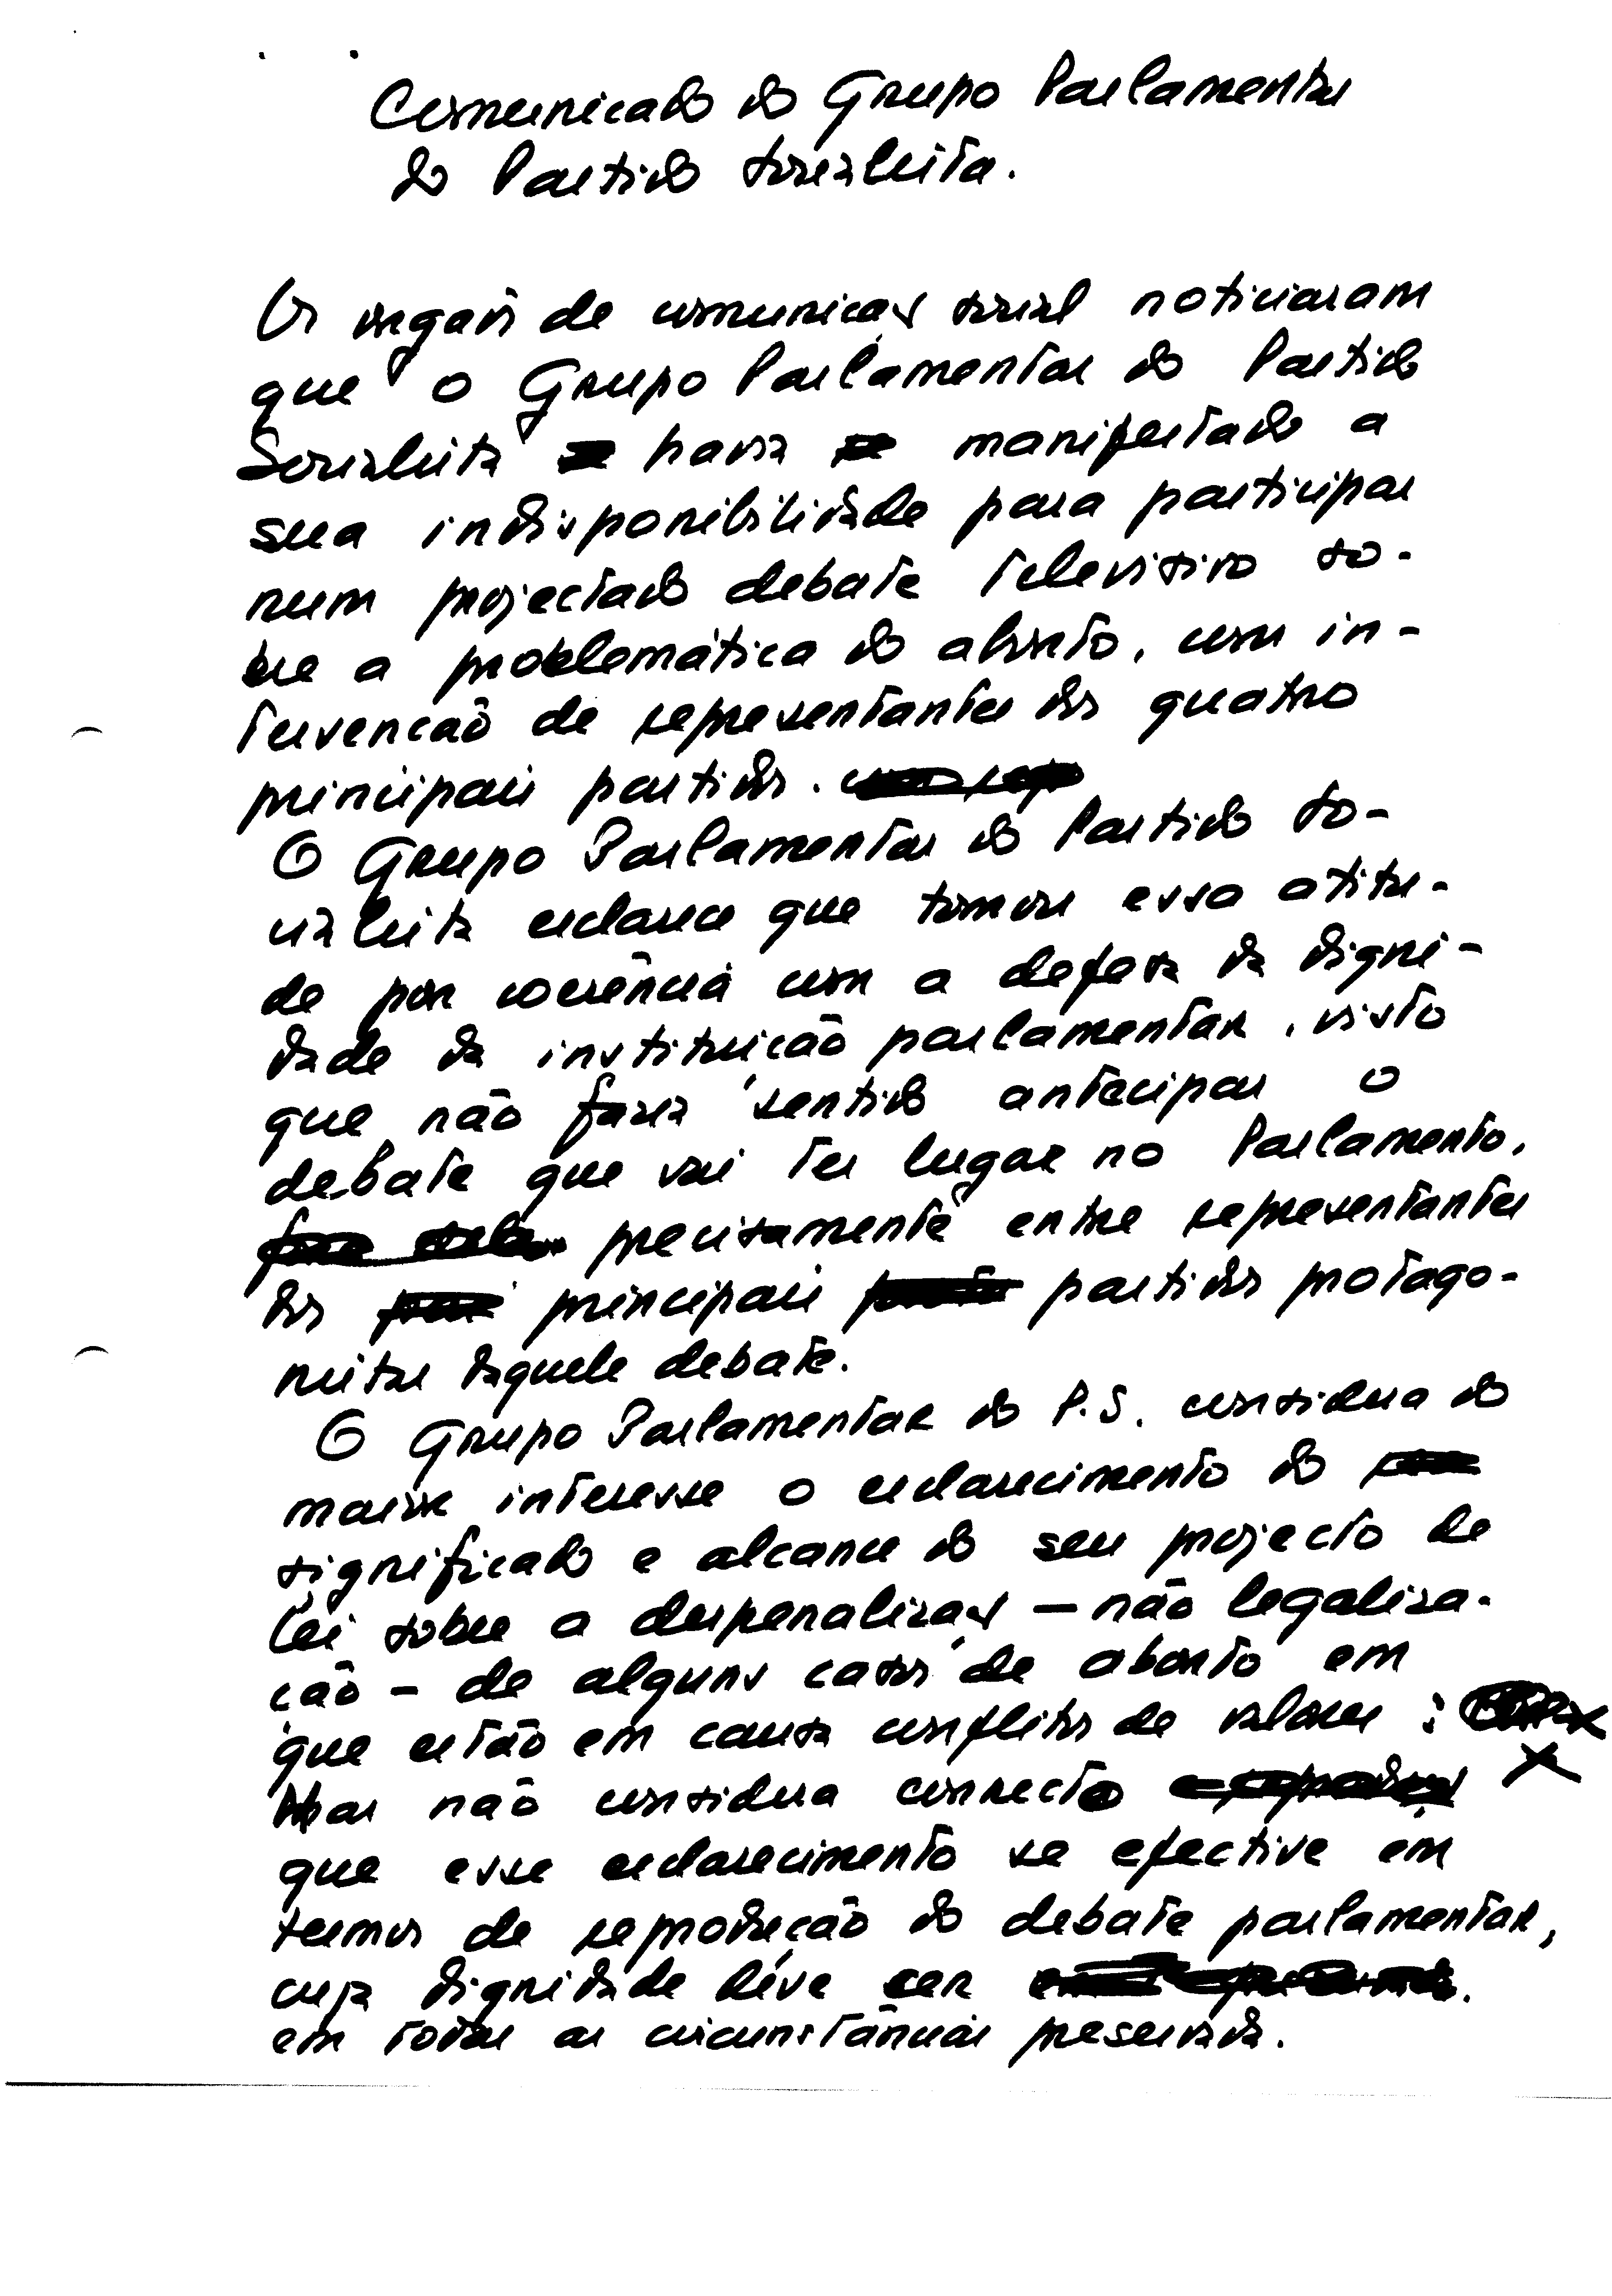 Comunicado do Grupo Parlamentar
do Partido Socialista.
Os orgãos de comunicação social noticiaram
que o Grupo Parlamentar do Partido
Socialista havia manifestado a
sua indisponibilidade para participar
num projectado debate televisivo so-
bre a problemática do aborto, com in-
tervenção de representantes dos quatro
principais partidos.
O Grupo Parlamentar do Partido So-
cialista esclarece que tomou essa atitu-
de por coerência com a defesa da digni-
dade da instituição parlamentar, visto
que não fazia sentido antecipar o
debate que vai ter lugar no Parlamento,
precisamente entre representantes
dos principais partidos protago-
nistas daquele debate.
O Grupo Parlamentar do P.S. considera do
maior interesse o esclarecimento do
significado e alcance do seu projecto de
lei sobre a despenalização – não legaliza-
ção – de alguns casos de aborto em
que estão em causa conflitos de valores;
Mas não considera correcto
que esse esclarecimento se efective em
termos de reprodução do debate parlamentar,
cuja dignidade deve ser
em todas as circunstâncias preservada.